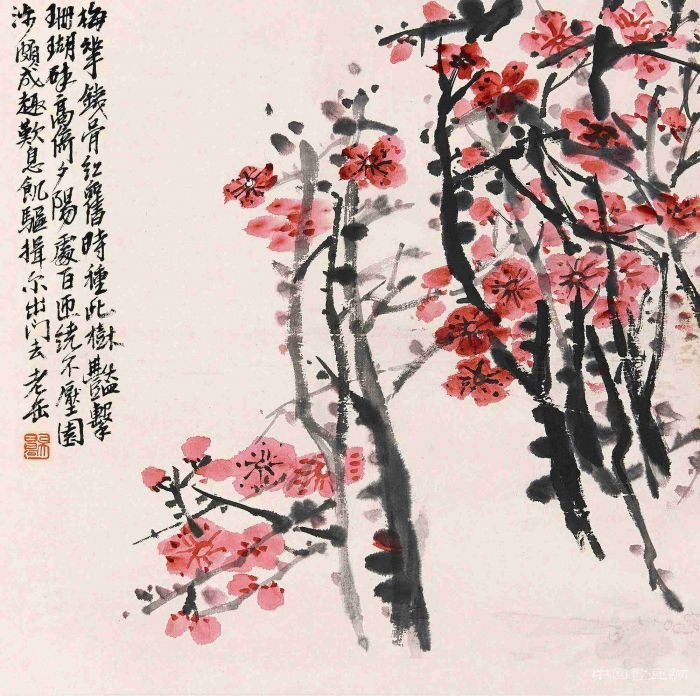 梅華鐵骨紅舊時種此樹豔擊
珊瑚碎高倚夕陽處百匝繞不壓園
涉頗成趣歎息飢驅揖尔出门去 老缶